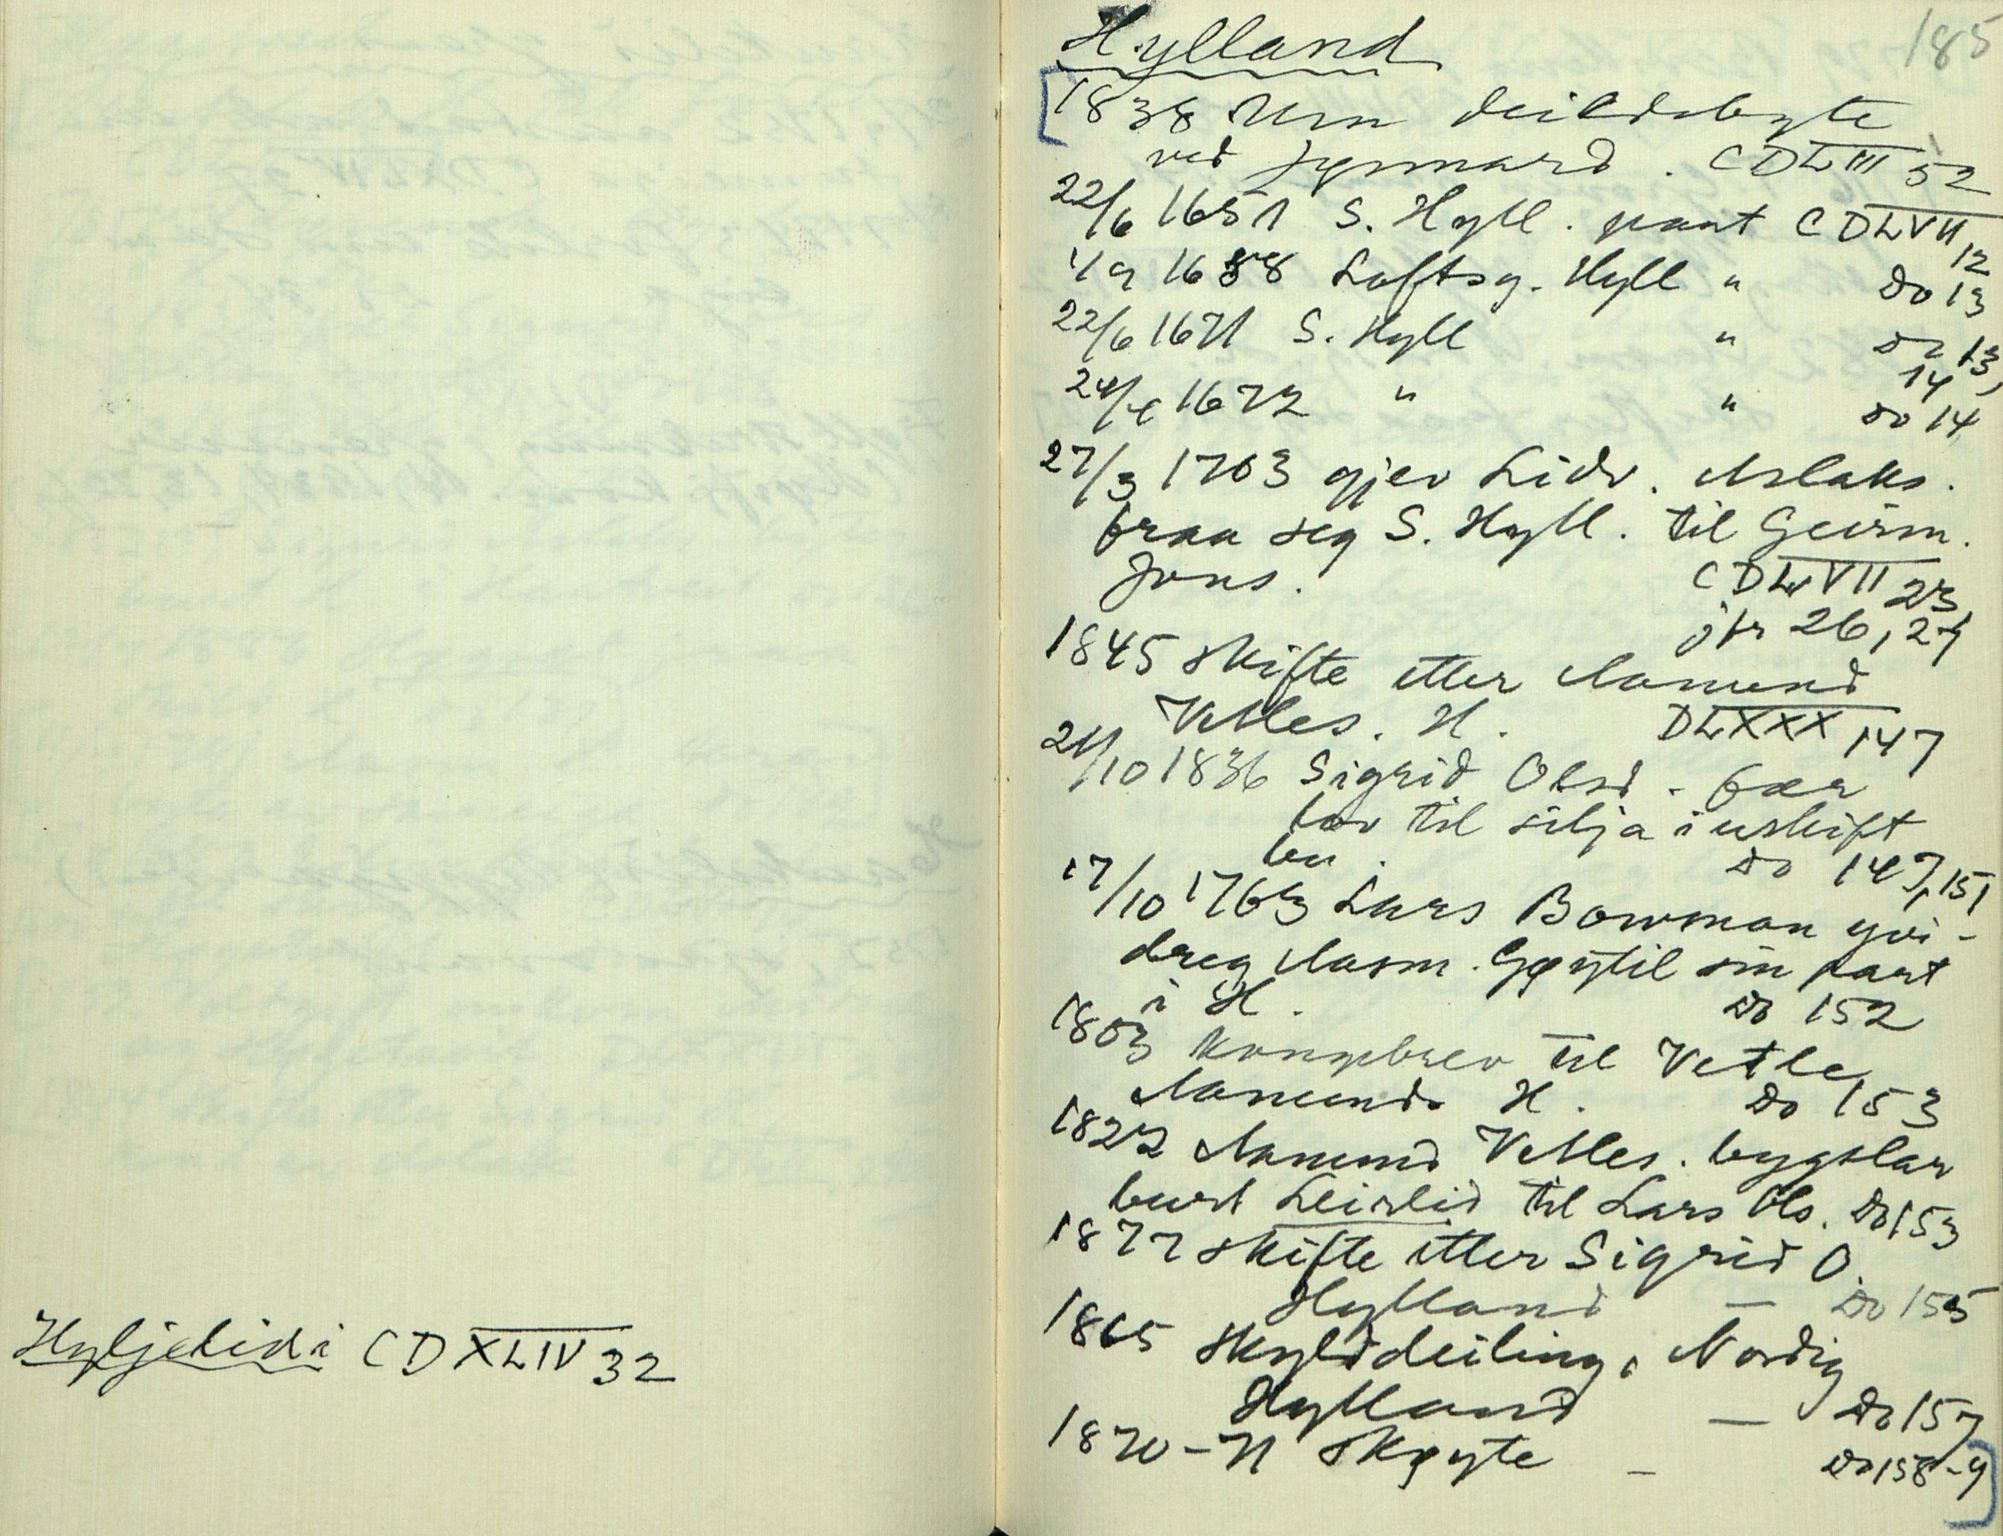 Hyljelidi CDXLIV 32
185
Hylland
1838 Um deildebyte
ved Jynnard. CDLIII 52
22/6 1651 S. Hyll. pant CDLVII 12
1/9 1688 Loftsg. Hyll " Do 13
22/6 1671 S. Hyll " Do 13,
14
24/4 1672 " " Do 14
27/3 1703 gjev Lidv. Aslaks.
fraa seg S. Hyll. til Geirm.
Jons. CDLVII 23,
jfr 26, 27
1845 skifte etter Aamund
Vetles. H. DLXXX 147
24/10 1836 Sigrid Olsd. fær
lov til sitja i uskift
bu. Do 147, 151
17/10 1763 Lars Bowman yvi-
dreg Aasm. Gøytil sin part
i H. Do 152
1803 Kongebrev til Vetle
Aamunds. H. Do 153
1822 Aamund Vetles. bygslar
burt Leirlid til Lars Ols. Do 153
1877 skifte etter Sigrid O.
Hylland — Do 155
1865 skylddeiling, Nordig
Hylland — Do 157
1870-71 Skøyte — Do 158-9